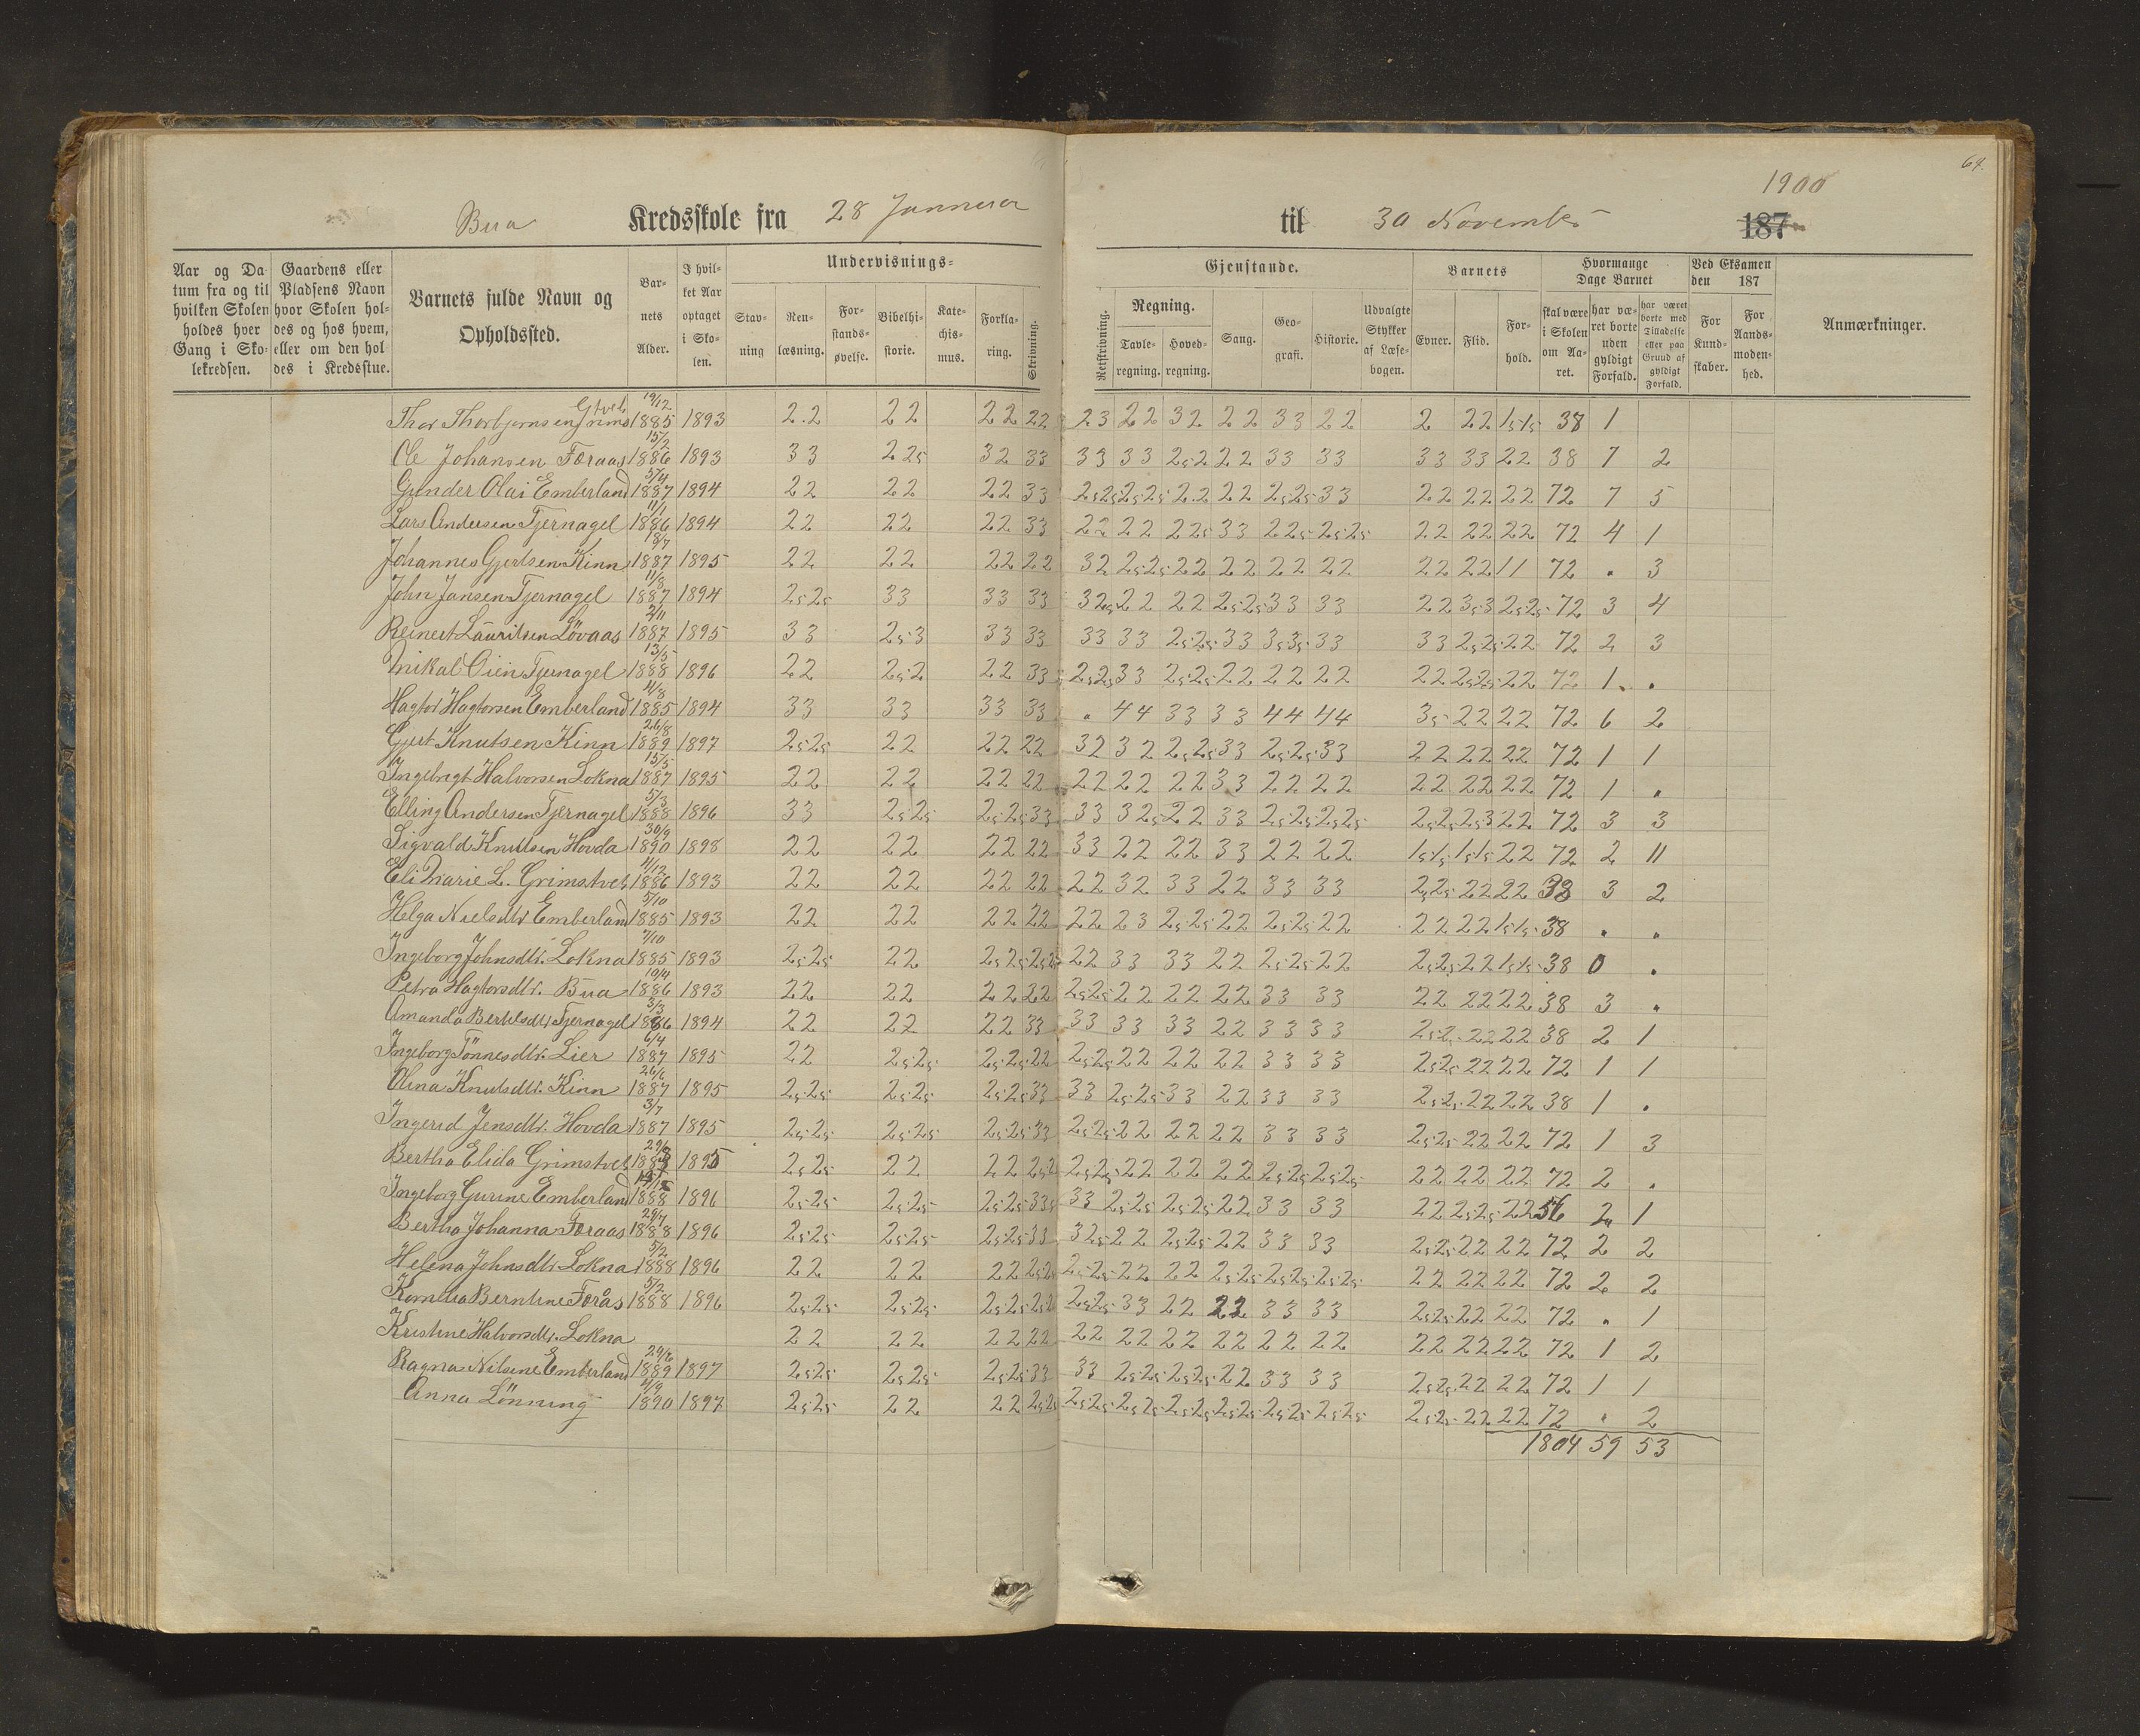 64.
1900
Bua Kredsskole fra 28 Januar til 30 November 187
Aar og Datum fra og til hvilken Skolen holdes hver Gang i Skolekredsen. Gaardens eller Pladsens Navn hvor Skolen holdes og hos hvem, eller om den holdes i Kredsstue. Barnets fulde Navn og Opholdssted. Barnets Alder. I hvilket Aar optaget i Skolen. Undervisnings- Gjenstande. Barnets Hvormange Dage Barnet Ved Eksamen den 187 Anmærkninger.
Stavning Renlæsning. Forstandsøvelse. Bibelhistorie. Katechismus. Forklaring. Skrivning. Retskrivning. Regning. Tavleregning. Hovedregning. Sang. Geografi. Historie. Udvalgte Stykker af Læsebogen. Evner. Flid. Forhold. skal være i Skolen om Aaret. har været borte uden gyldigt Forfald. har været borte med Tilladelse eller paa Grund af gyldigt Forfald. For Kundskaber. For Aandsmodenhed.
Thor Thorbjørnsen Grimstvet 19/12 1885 1893 2.2 22 22 22 23 22 32 22 33 22 2 22 38 1
Ole Johansen Foraas 15/2 1886 1893 33 2 25 32 33 33 33 22 33 33 33 33 22 38 7 2
Gunder Olai Emberland 1887 1894 22 22 22 33 2,52,5 2,52,5 2.2 22 2,52,5 33 22 22 22 72 7 5
Lars Andersen Tjernagel 11/1 1886 1894 22 22 22 33 22 22 22,5 33 22,5 2,52,5 22 22 22 72 4 1
Johannes Gjertsen Kinn 1887 1895 22 22 22 22 32 2,52,5 22 22 22 22 22 22 11 72 . 3
John Jansen Tjernagel 11/8 1887 1894 2,52,5 33 33 33 22 22 2,52,5 33 33 22 3,53 2,52,5 72 3 4
Reinert Lauritsen Lövaas 2/11 1887 1895 33 2,53 33 33 33 33 2,52,5 33 3,53,5 33 33 2,52,5 22 72 2 3
Mikal Oien Tjernagel 13/5 1888 1896 22 2,52 22 33 2,52,5 33 2,52,5 22 22 22 22 2,52,5 22 72 1 .
Hagtor Hagtorsen Emberland 4/8 1885 1894 33 33 33 33 . 44 33 33 44 44 35 22 22 72 6 2
Gjert Knutsen Kinn 26/8 1889 1897 2,52,5 22 22 22 32 32 2,52,5 33 2,52,5 33 22 22 22 72 1 1
Ingebrigt Halvorsen Lokna 15/5 1887 1895 22 22 22 22 22 22 22 33 22 22 22 22 22 72 1 .
Elling Andersen Tjernagel 5/3 1888 1896 33 2,52,5 2,52,5 33 33 32,5 22 33 2,52,5 2,52,5 2,52,5 2,53 22 72 3 3
Sigvald Knutsen Hovda 30/9 1890 1898 22 22 22 22 33 22 22 33 22 22 1,51,5 1,51,5 22 72 2 11
Eli Marie L. Grimstvet 4/12 1886 1893 22 22 22 22 22 32 33 22 33 33 2,52,5 22 22 38 3 2
Helga Nielsdtr. Emberland 5/10 1885 1893 22 22 22 22 22 23 2,52,5 22 2,52,5 22 22 22 1,51,5 38 . .
Ingeborg Johnsdtr. Lokna 7/10 1885 1893 2,52,5 22 2,52,5 2,52,5 22 33 33 22 2,52,5 22 2,52,5 22 1,51,5 38 0 .
Petra Hagtorsdtr. Bua 10/4 1886 1893 22 22 22 22 2,52,5 22 22 22 33 33 22 22 22 38 3 .
Amanda Bertelsdtr. Tjernagel 3/3 1886 1894 22 22 22 33 33 33 33 22 33 33 2,52,5 22 22 38 2 1
Ingeborg Tönnesdtr. Lier 6/4 1887 1895 22 2,52,5 2,52,5 22 2,52,5 22 22 22 33 33 2,52,5 22 22 72 1 1
Olina Knutsdtr. Kinn 26/6 1887 1895 2,52,5 2,52,5 2,52,5 33 33 2,52,5 33 22 33 33 2,52,5 22 22 38 1 .
Ingerid Jensdtr. Hovda 3/7 1887 1895 2,52,5 2,52,5 2,52,5 33 2,52,5 22 22 22 33 33 2,52,5 22 22 72 1 3
Bertha Elida Grimstvet 1895 2,52,5 22 22 2,52,5 2,52,5 22 22 22 2,52,5 2,52,5 22 22 22 72 2 .
Ingeborg Gurine Emberland 1888 1896 2,52,5 2,52,5 2,52,5 33 33 2,52,5 2,52,5 22 33 33 22 2,52,5 22 56 2 1
Bertha Johanna Foraas 29/7 1888 1896 2,52,5 2,52,5 2,52,5 33 32,5 22 2,52,5 22 33 33 2,52,5 22 22 72 2 2
Helena Johnsdtr. Lokna 5/2 1888 1896 22 22 22 2,52,5 2,52,5 22 22 2,52,5 2,52,5 2,52,5 22 22 22 72 2 2
Kornelia Berntine Forås 5/2 1888 1896 2,52,5 2,52,5 2,52,5 2,52,5 2,52,5 33 22 22 33 33 2,52,5 22 22 72 . 1
Kristine Halvorsdtr. Lokna 22 22 22 22 22 22 22 22 22 22 22 22 22 72 1 2
Ragna Nilsine Emberland 29/6 1889 1897 2,52,5 2,52,5 2,52,5 33 33 2,52,5 2,52,5 22 33 33 2,52,5 22 22 72 1 1
Anna Lönning 4/9 1890 1897 2,52,5 22 22 2,52,5 2,52,5 2,52,5 2,52,5 2,52,5 2,52,5 2,52,5 2,52,5 22 22 72 . 2
1804 59 53